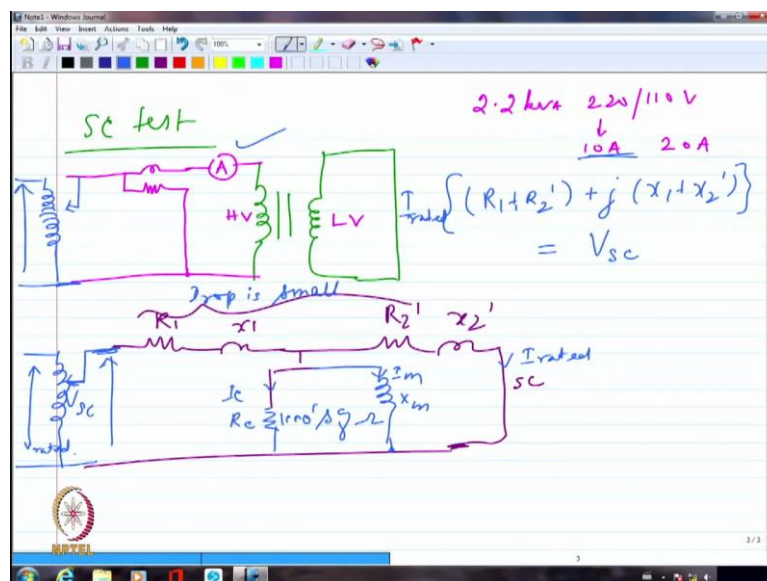 Note1 - Windows Journal
File Edit View Insert Actions Tools Help
100%
B I
SC test
2.2 kVA 220/110V
10A 20A
A
HV
LV
I rated {(R1+R2') + j (x1+x2')}
= Vsc
Drop is small
R1 x1 R2' x2'
I rated
SC
Vsc
Vrated
Ic
Rc
1000's of Ω
Im
Xm
NPTEL
3/3
3